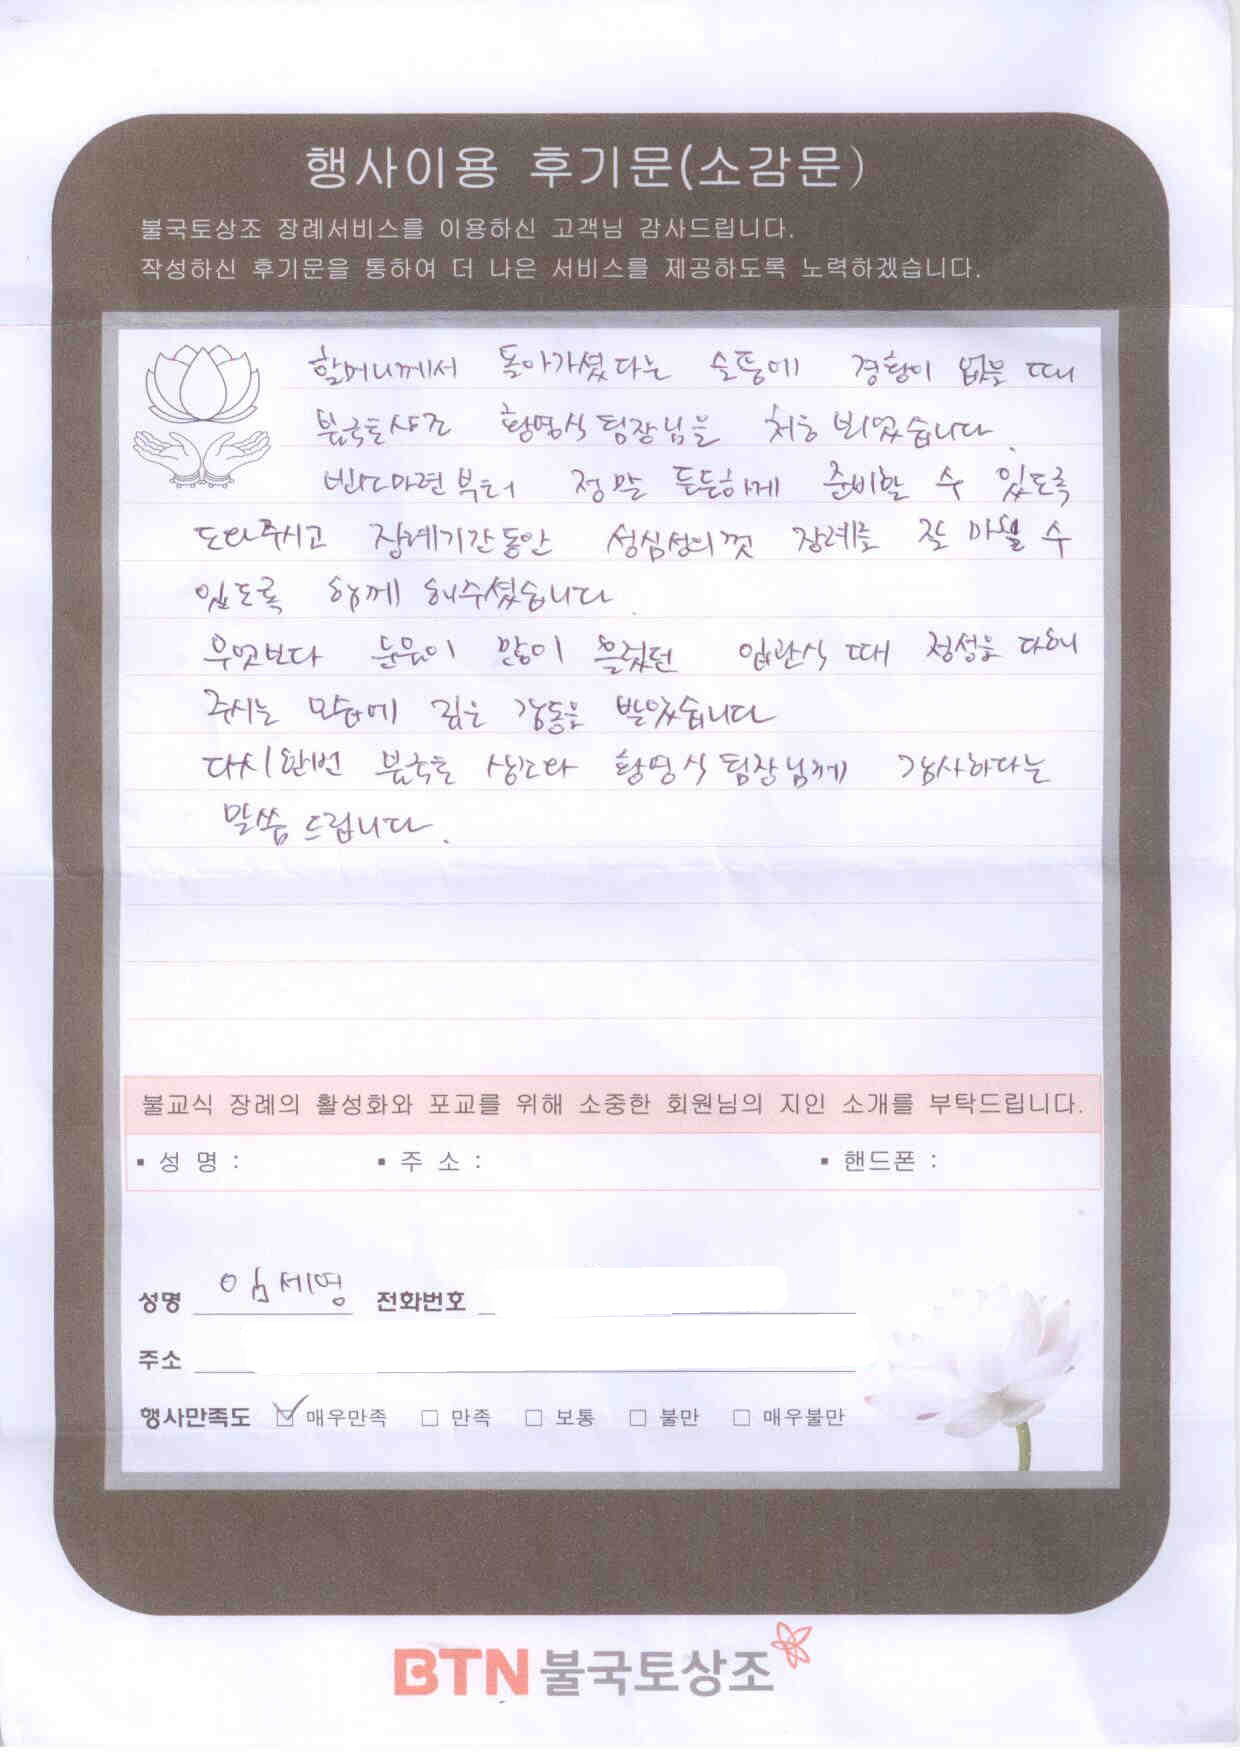 행사이용 후기문(소감문)
불국토상조 장례서비스를 이용하신 고객님 감사드립니다.
작성하신 후기문을 통하여 더 나은 서비스를 제공하도록 노력하겠습니다.
할머니께서 돌아가셨다는 슬픔에 경황이 없을 때
불국토상조 황영식 팀장님을 처음 뵈었습니다.
빈소마련부터 정말 든든하게 준비할 수 있도록
도와주시고 장례기간동안 성심성의껏 장례를 잘 마칠 수
있도록 함께 해주셨습니다.
무엇보다 눈물이 많이 흘렀던 입관식 때 정성을 다해
주시는 모습에 깊은 감동을 받았습니다
다시한번 불국토 상조와 황영식 팀장님께 감사하다는
말씀 드립니다.
불교식 장례의 활성화와 포교를 위해 소중한 회원님의 지인 소개를 부탁드립니다.
▪ 성 명 : ▪ 주 소 : ▪ 핸드폰 :
성명 임세영 전화번호
주소
행사만족도 ☑ 매우만족 □ 만족 □ 보통 □ 불만 □ 매우불만
BTN 불국토상조